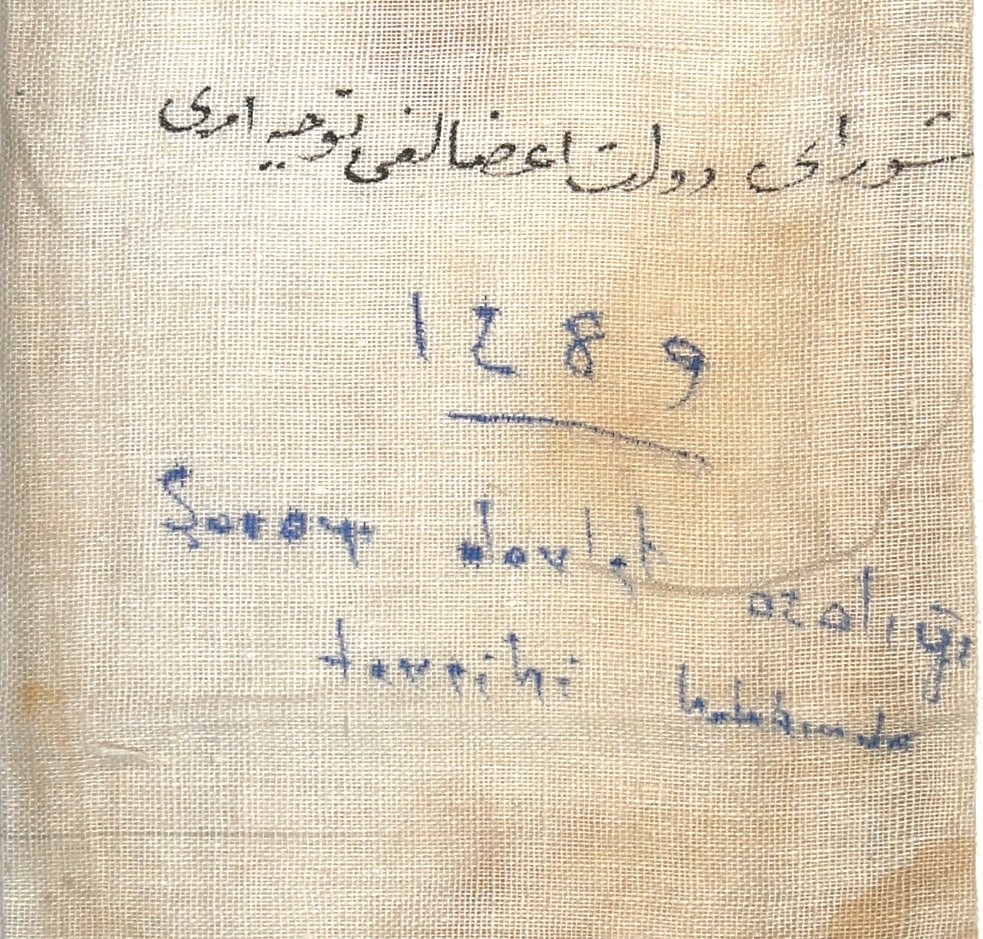 شورای دولت اعضالغی توجیه امری
1289
Şorayı devlet azalığı
tevcihi hakkında